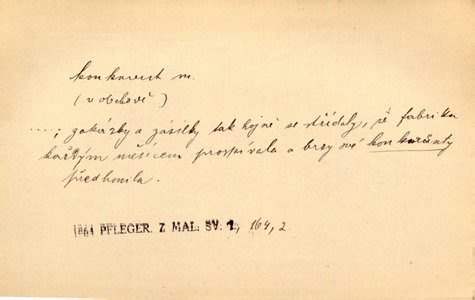 konkurent m.
(v obchodě)
...; zakázky a zásilky tak hojně se střídaly, že fabrika
každým měsícem prospívala a brzy své konkurenty
předhonila.
1861 PFLEGER. Z MAL. SV. 1, 164, 2.